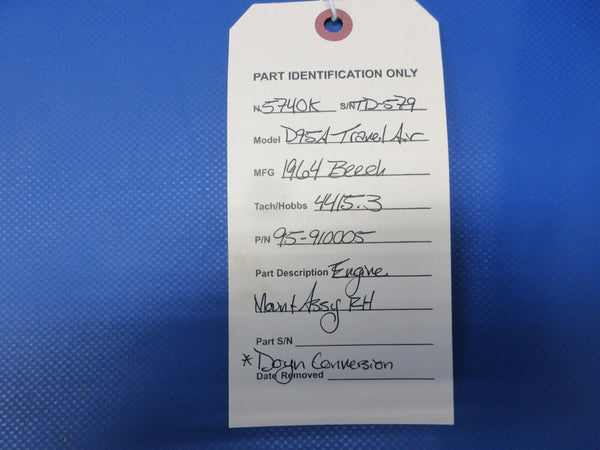 PART IDENTIFICATION ONLY
N. 5740K S/N TD-579
Model D95A Travel Air
MFG 1964 Beech
Tach/Hobbs 4415.3
P/N 95-910005
Part Description Engine
Mount Assy RH
Part S/N
* Doyn Conversion
Date Removed